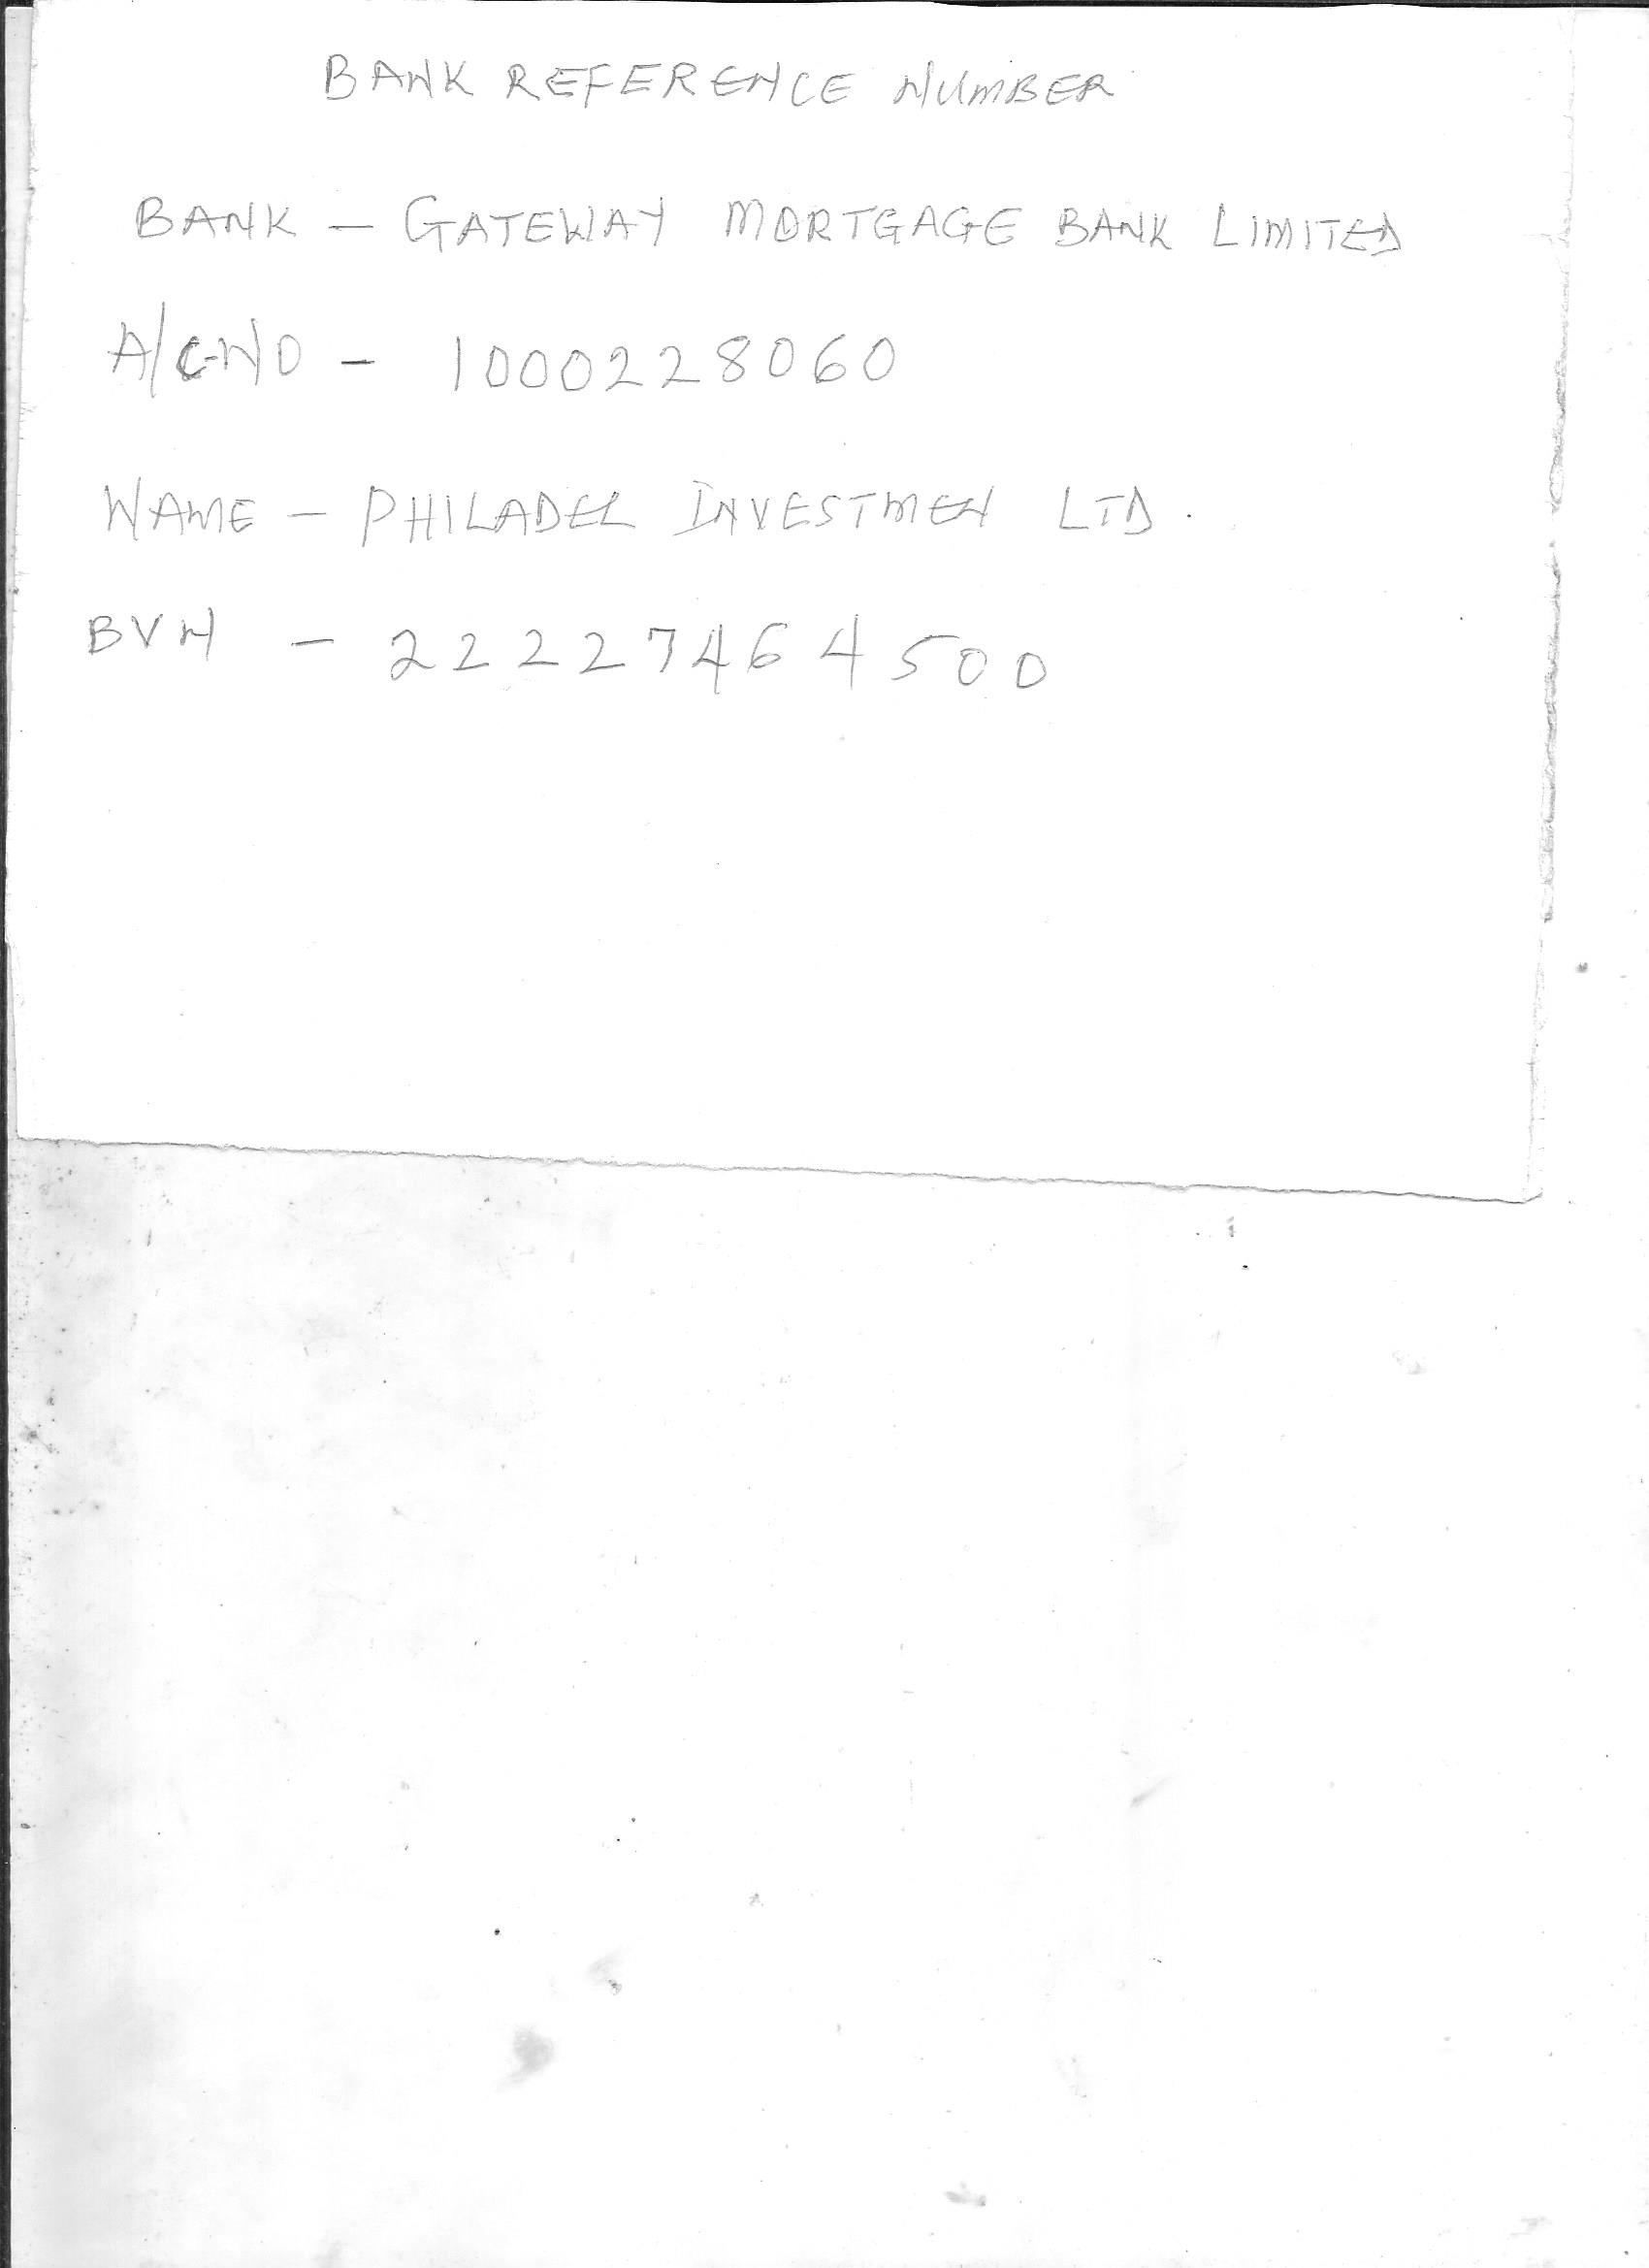 BANK REFERENCE NUMBER
BANK - GATEWAY MORTGAGE BANK LIMITED
A/C NO - 1000228060
NAME - PHILADEL INVESTMEN LTD.
BVN - 22227464500